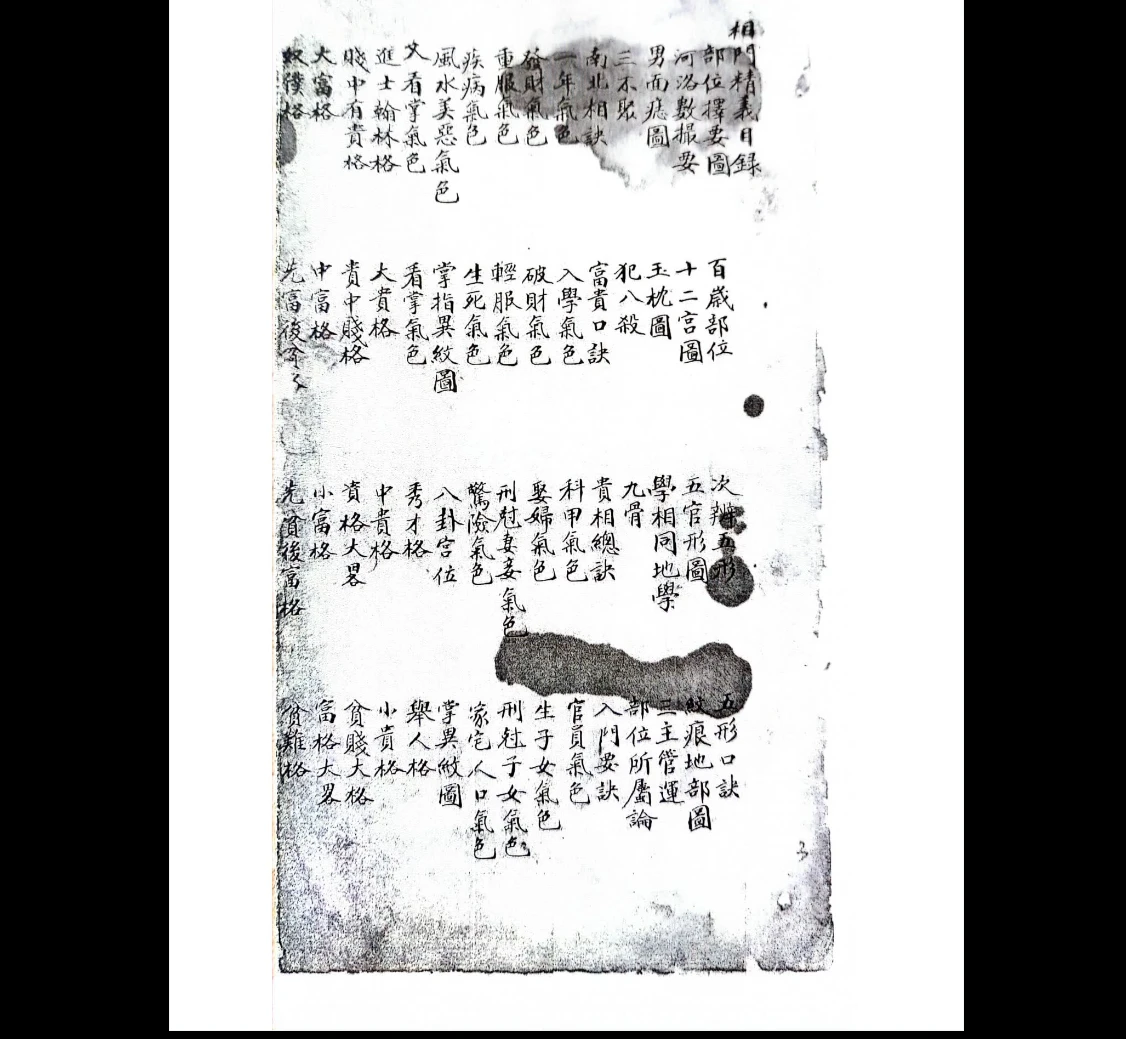 相門精義目録
部位擇要圖 百歲部位 次辨五形 五形口訣
河洛數撮要 十二宮圖 五官形圖 紋痕地部圖
男面痣圖 玉枕圖 學相同地學 三主管運
三不取 犯八殺 九骨 部位所屬論
南北相訣 富貴口訣 貴相總訣 入門要訣
一年氣色 入學氣色 科甲氣色 官員氣色
發財氣色 破財氣色 娶婦氣色 生子女氣色
重服氣色 輕服氣色 刑尅妻妾氣色 刑尅子女氣色
疾病氣色 生死氣色 驚險氣色 家宅人口氣色
風水美惡氣色 掌指異紋圖 八卦宮位 掌異紋圖
又看掌氣色 看掌氣色 秀才格 舉人格
進士翰林格 大貴格 中貴格 小貴格
賤中有貴格 貴中賤格 貴格大畧 貧賤大格
大富格 中富格 小富格 富格大畧
奴僕格 先富後 先貧後富格 貧難格
3